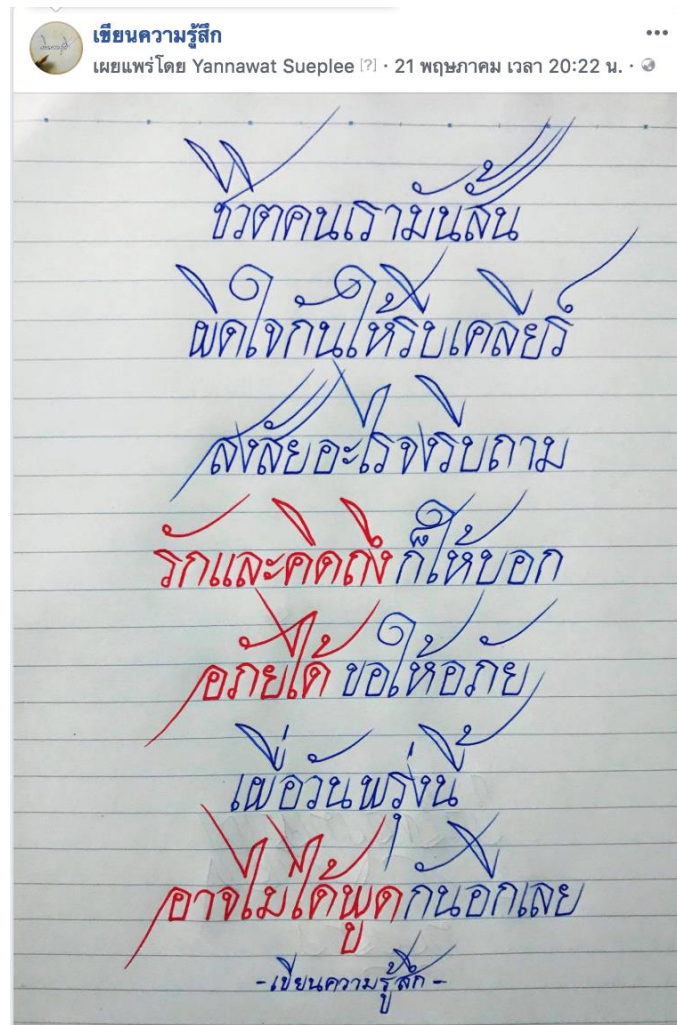 เขียนความรู้สึก
เผยแพร่โดย Yannawat Sueplee [?] · 21 พฤษภาคม เวลา 20:22 น. ·
ชีวิตคนเรามันสั้น
ผิดใจกันให้รีบเคลียร์
สงสัยอะไรจงรีบถาม
รักและคิดถึง ก็ให้บอก
อภัยได้ ขอให้อภัย
เผื่อวันพรุ่งนี้
อาจไม่ได้พูดกันอีกเลย
-เขียนความรู้สึก-